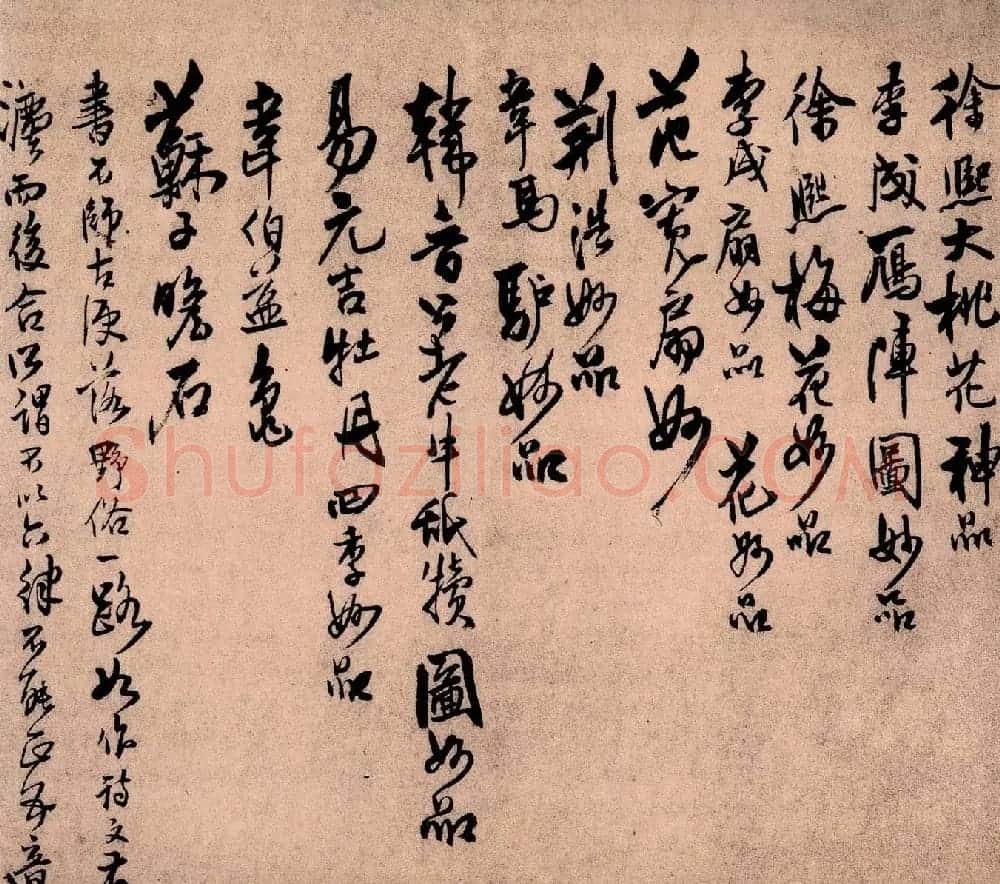 徐熙大桃花神品
李成雁陣圖妙品
徐熙梅花妙品
李成扇妙品 花妙品
范寬扇妙
荊浩妙品
韋馬驢妙品
韓晉公老牛舐犢圖妙品
易元吉牡丹四季妙品
韋伯益龜
蘇子瞻石
書不師古便落野俗一路如作詩文有
而後合所謂不以六律不能正五音
shufaziliao.COM